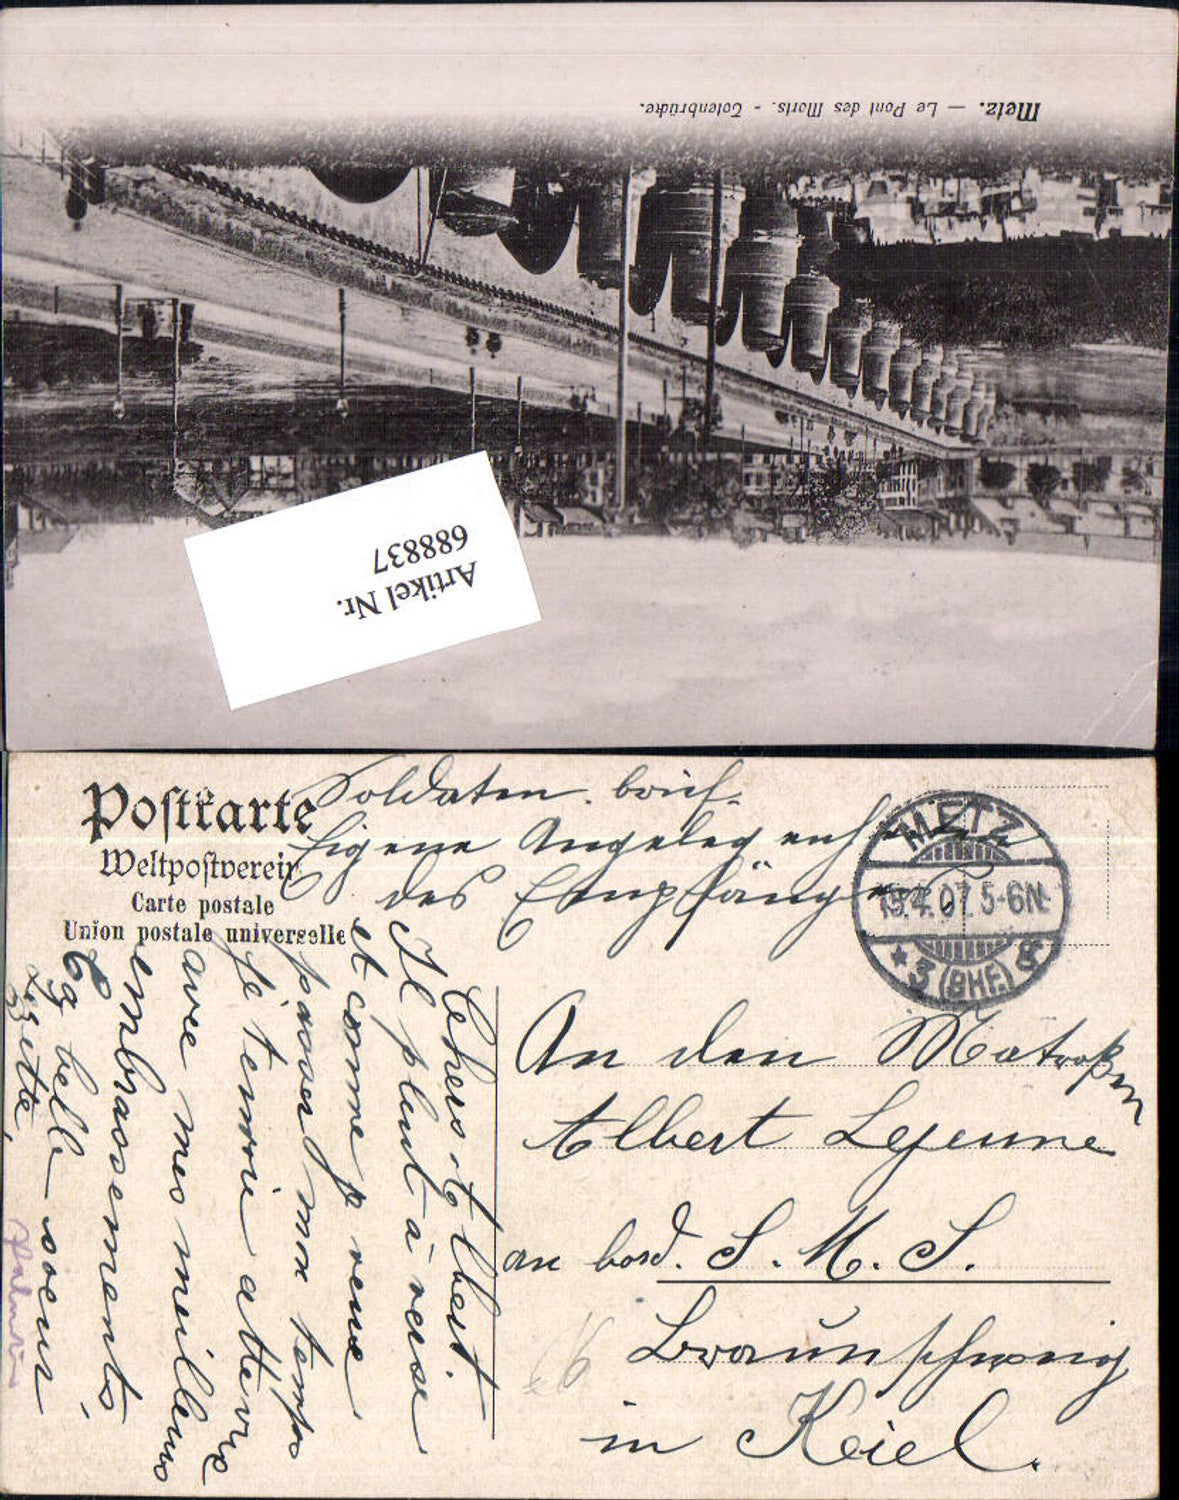 Metz. — Le Pont des Morts. - Totenbrücke.
Artikel Nr.
688837
Postkarte
Weltpostverein
Carte postale
Union postale universelle
Soldaten. brief.
Eigene Angelegenheiten
des Empfängers
METZ
19.4.07. 5-6N.
* 3 (BHF.) g
An den Matroßen
Albert Lejeune
an bord. S. M. S.
Braunschweig
in Kiel.
Cher Albert.
Il pleut à verse
et comme je veux
passer mon temps
Je t'envoie
avec mes meilleurs
embrassements
belle-soeur